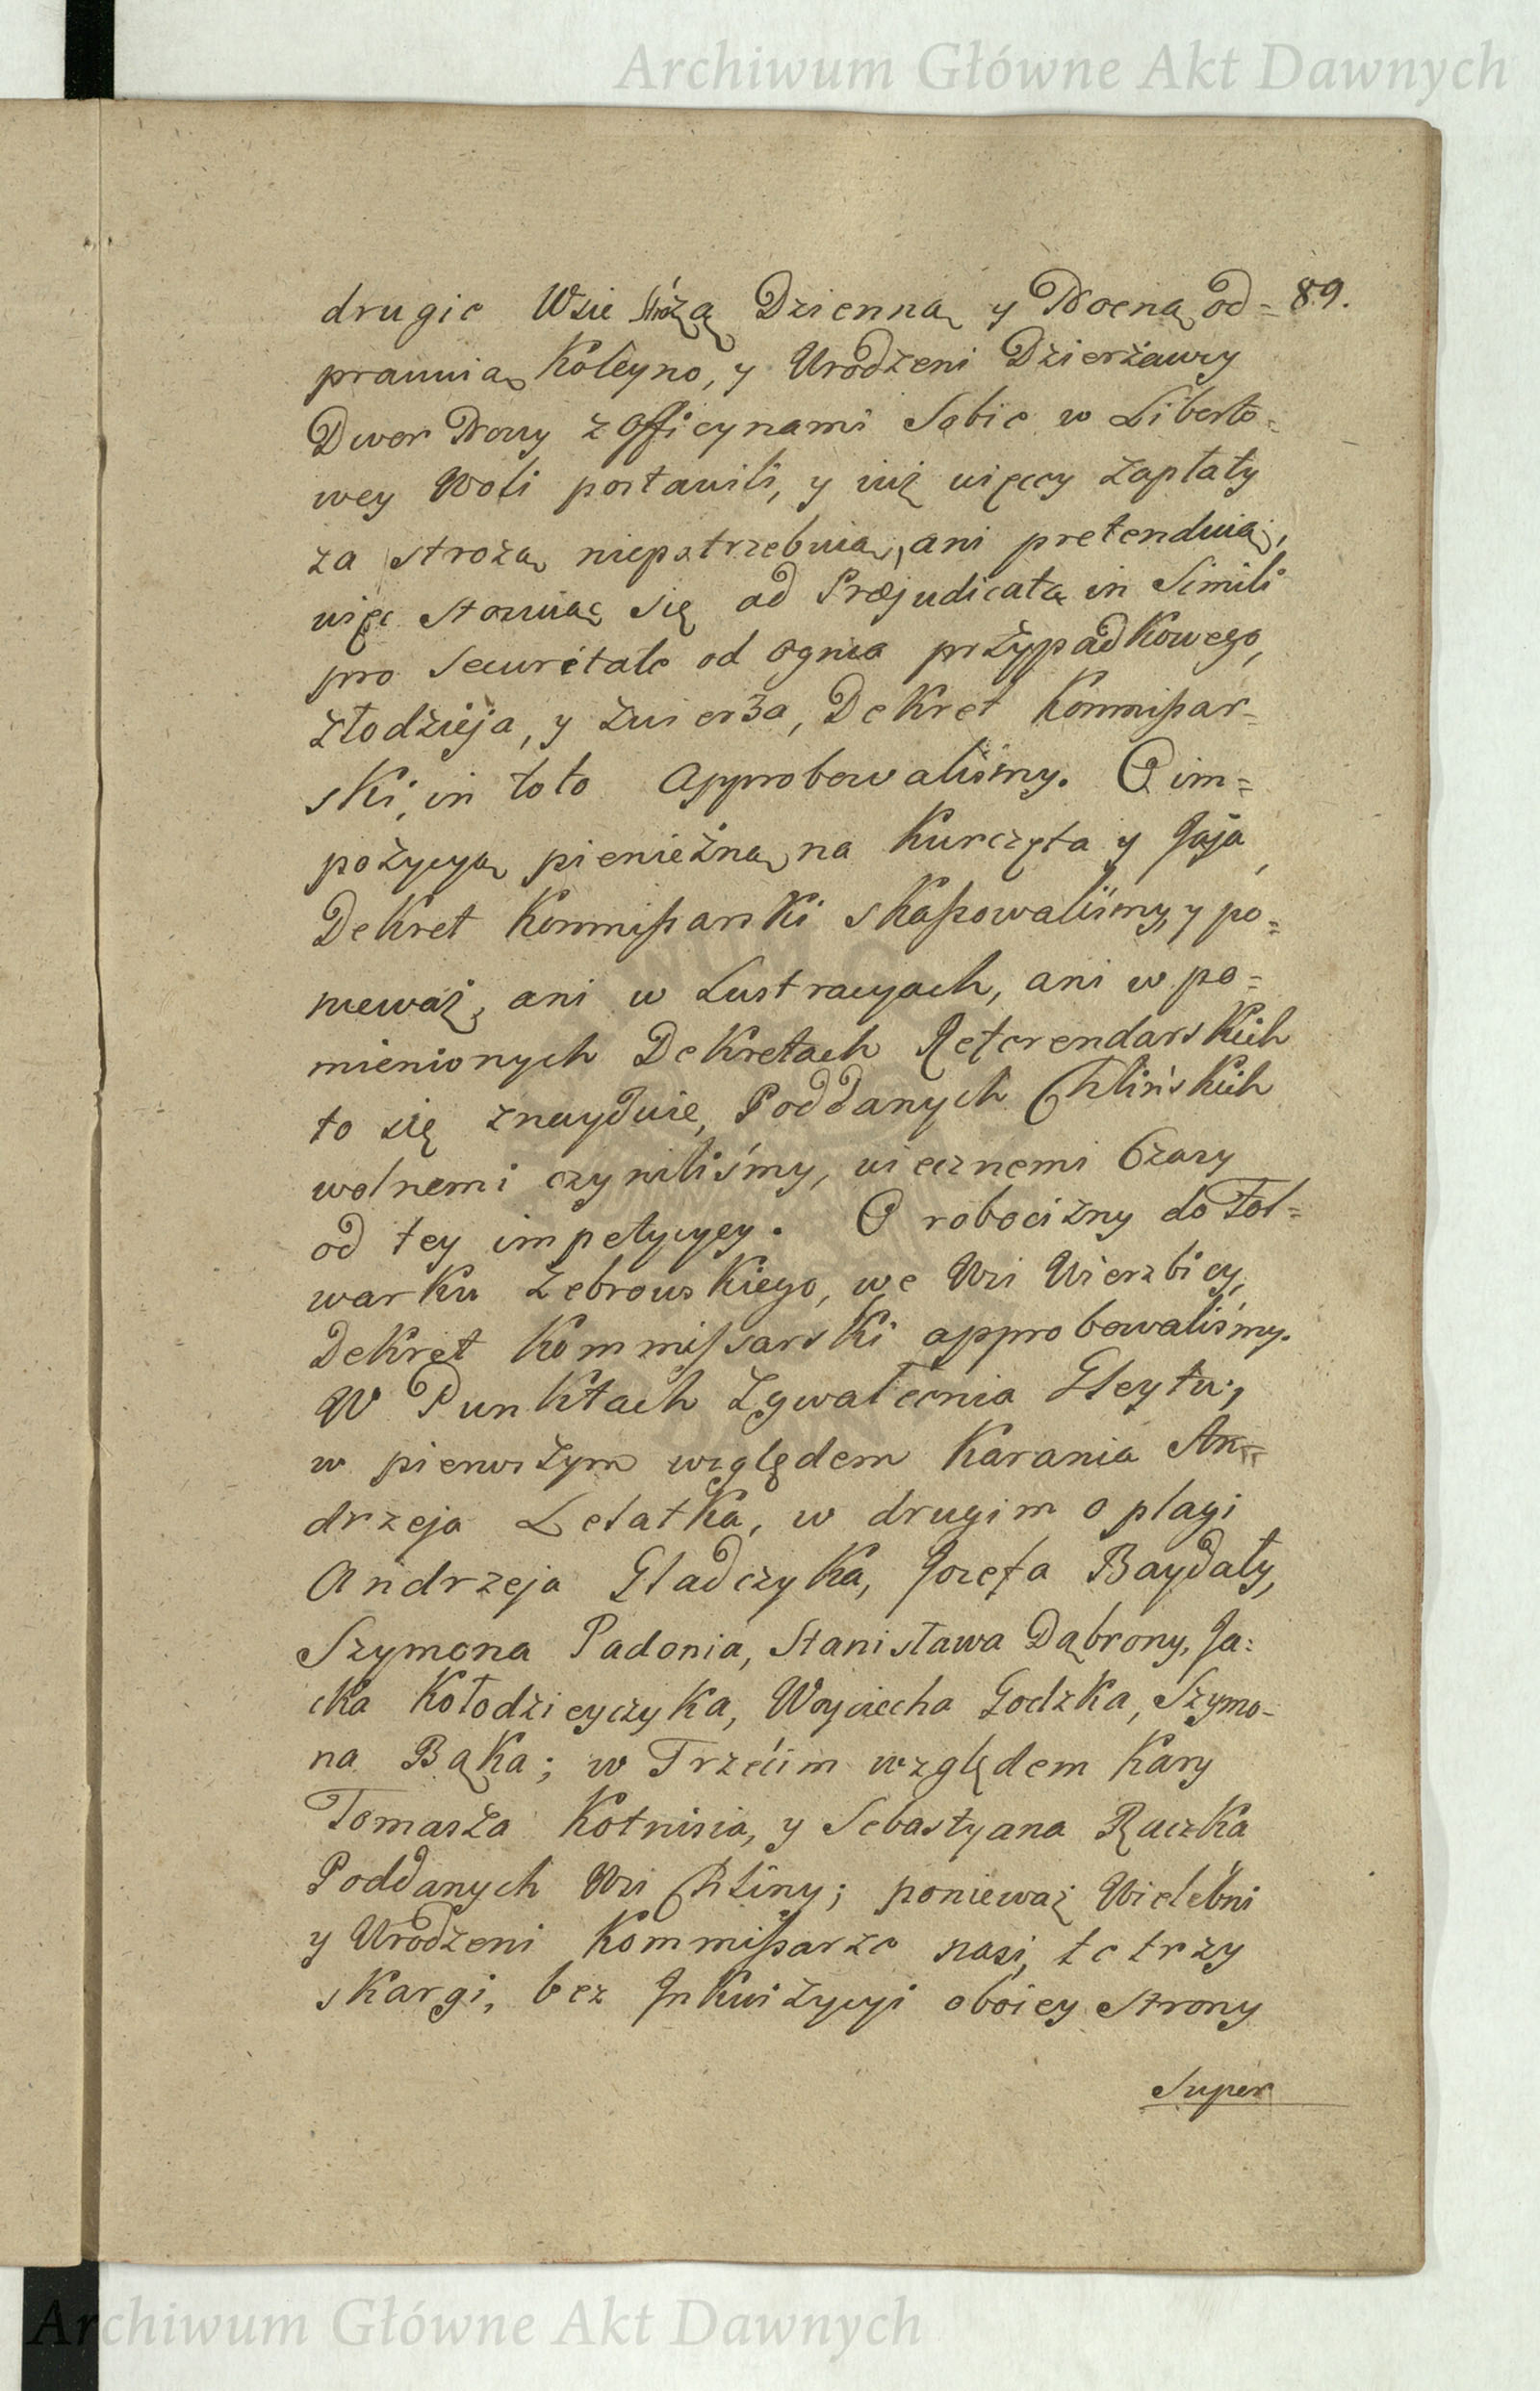 Archiwum Główne Akt Dawnych
89.
drugie Wsie Stróżą Dzienną y Nocną od=
prawuią Koleyno, y Urodzeni Dzierżawcy
Dwor Nowy z Officynami Sobie w Liberto=
wey Woli postawili, y iuż więcey zapłaty
za strożą niepotrzebuią, ani pretenduią,
więc stosuiąc się ad Præjudicata in Simili
pro Securitate od ognia przypadkowego,
złodzieja, y zwierza, Dekret Kommissar=
ski, in toto Approbowaliśmy. O im=
pozycyą pienieżną na Kurczęta y Jaja,
Dekret Kommissarski skassowaliśmy, y po=
nieważ, ani w Lustracyach, ani w po=
mienionych Dekretach Referendarskich
to się znayduie, Poddanych Chlińskich
wolnemi czyniliśmy, wiecznemi Czasy
od tey impetycyey. O robocizny do Fol=
warku Zebrowskiego, we Wsi Wierzbicy,
Dekret Kommissarski approbowaliśmy.
W Punktach zgwałcenia Gleytu,
w pierwszym względem Karania An=
drzeja Lelatka, w drugim o plagi
Andrzeja Gladczyka, Jozefa Baydały,
Szymona Padonia, Stanisława Dąbrony, Ja=
cka Kołodzieyczyka, Woyciecha Godzka, Szymo=
na Bąka; w Trzecim względem Kary
Tomasza Kotnisia, y Sebastyana Rączka
Poddanych Wsi Chliny; ponieważ Wielebni
y Urodzeni Kommissarze nasi, te trzy
skargi, bez Inkwizycyi oboiey Strony
Super
Archiwum Główne Akt Dawnych